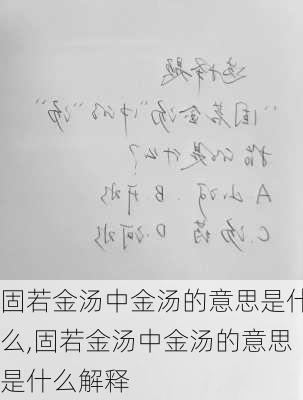 选择题
“固若金汤”中的“汤”
指的是什么?
A 小河. B. 开水
C. 汤药 D.河水
固若金汤中金汤的意思是什
么,固若金汤中金汤的意思
是什么解释